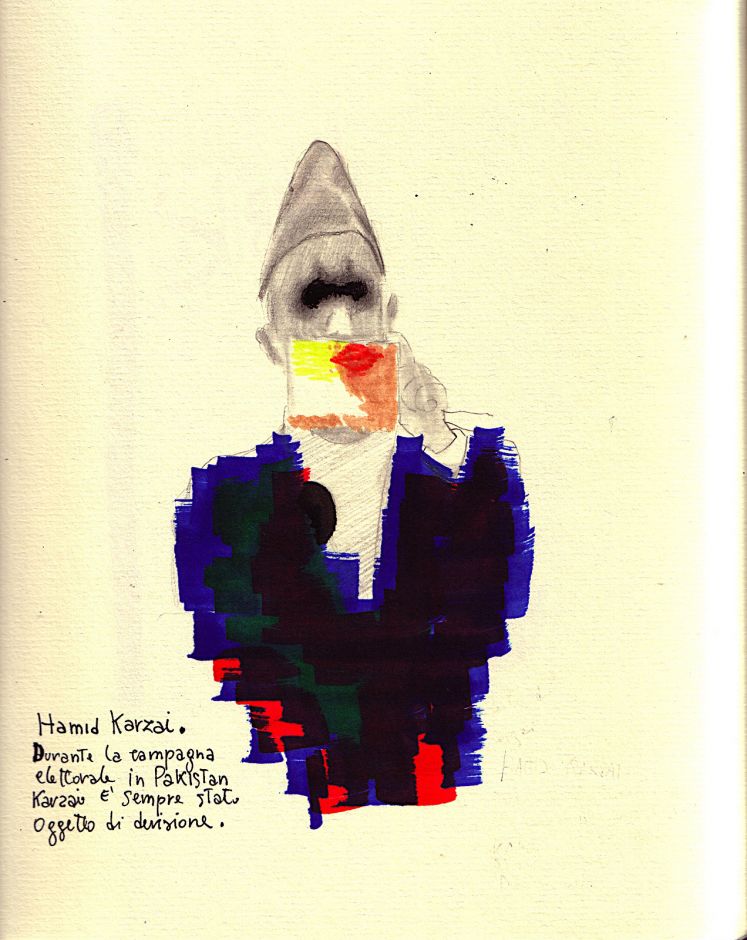 Hamid Karzai.
Durante la campagna
elettorale in Pakistan
Karzai E' sempre stato
oggetto di derisione.